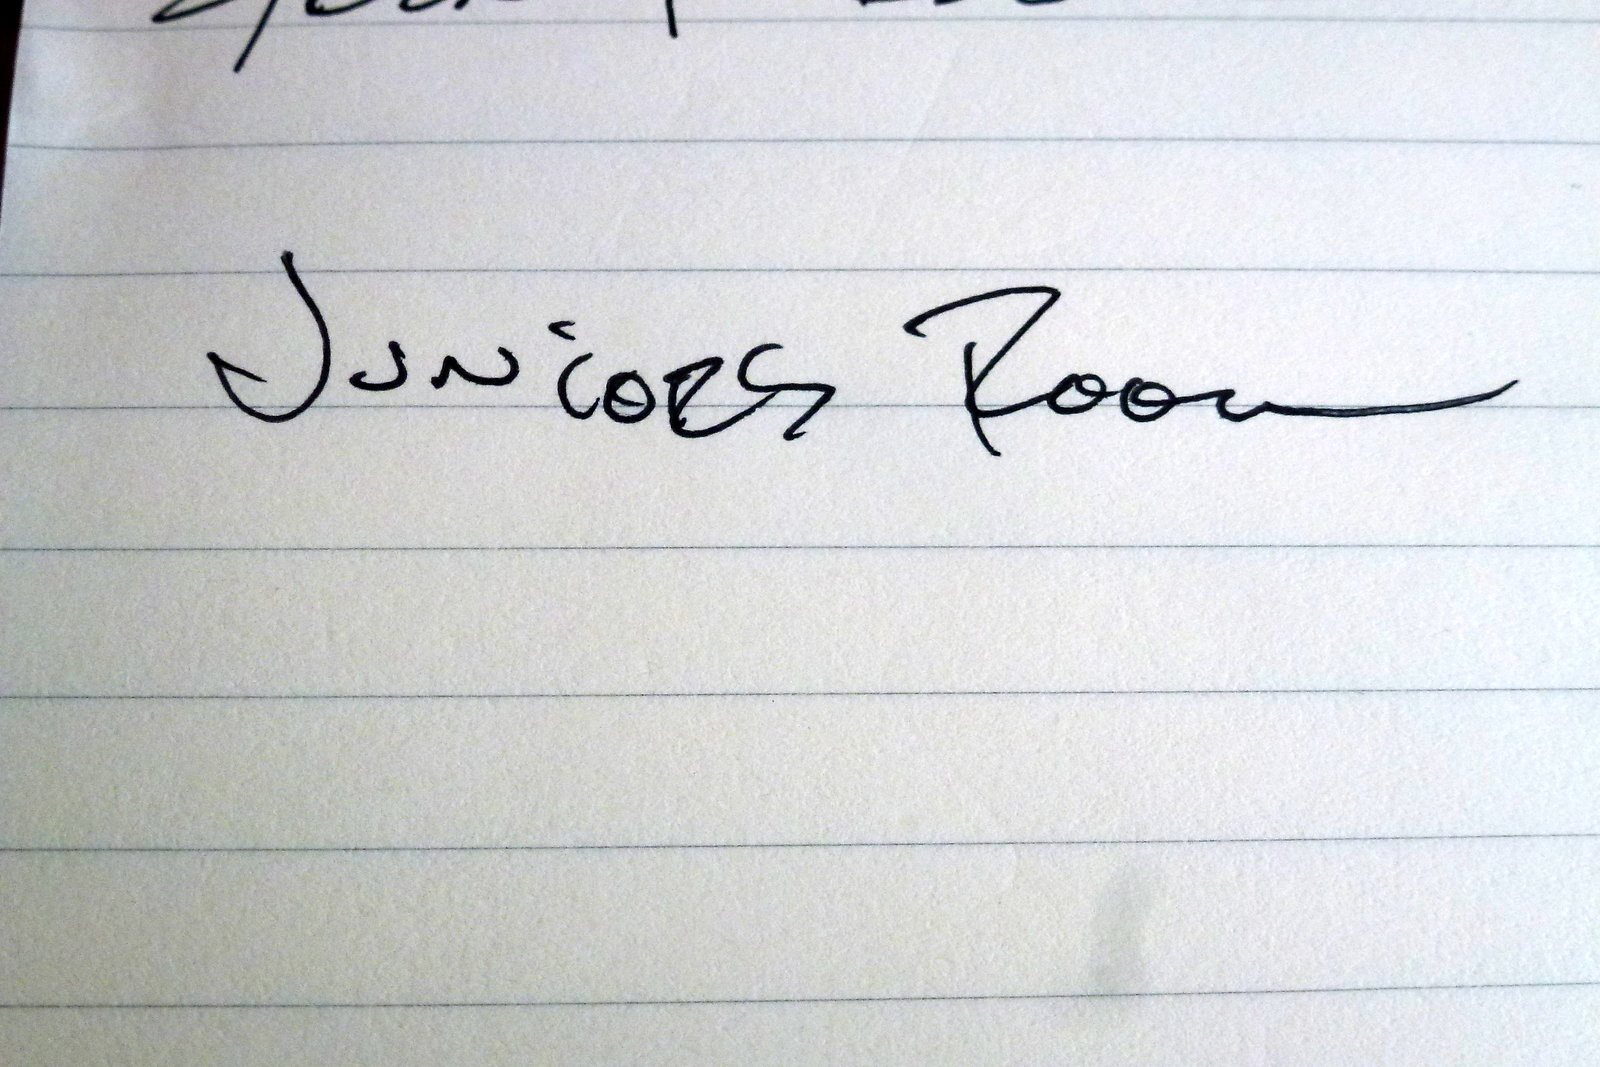 Juniors Room